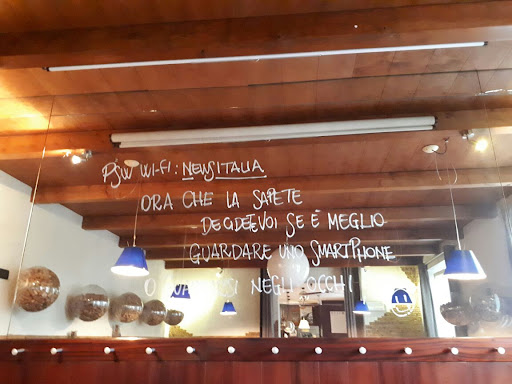 PSW WI-FI: NEWSITALIA
ORA CHE LA SAPETE
DECIDETEVOI SE È MEGLIO
GUARDARE UNO SMARTPHONE
O GUARDARSI NEGLI OCCHI